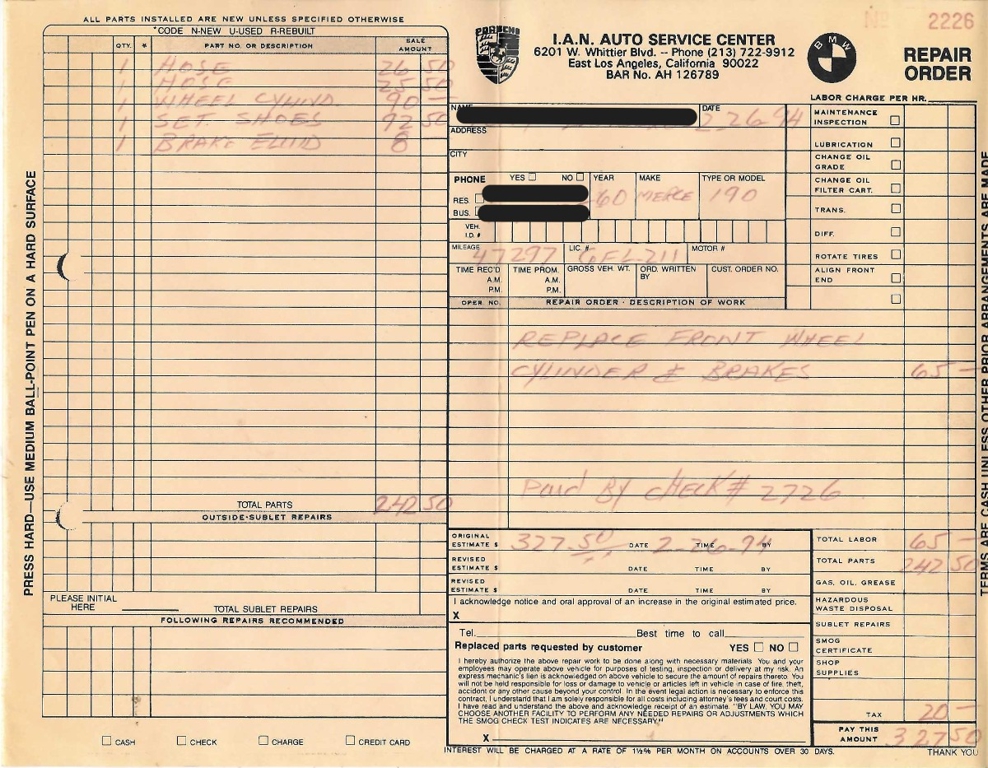 ALL PARTS INSTALLED ARE NEW UNLESS SPECIFIED OTHERWISE
*CODE N-NEW U-USED R-REBUILT
QTY. * PART NO. OR DESCRIPTION SALE AMOUNT
1 HOSE 26 50
1 HOSE 25 50
1 WHEEL CYLIND 90 —
1 SET. SHOES 92 50
1 BRAKE FLUID 8
TOTAL PARTS 242 50
OUTSIDE-SUBLET REPAIRS
PLEASE INITIAL HERE
TOTAL SUBLET REPAIRS
FOLLOWING REPAIRS RECOMMENDED
CASH CHECK CHARGE CREDIT CARD
PRESS HARD—USE MEDIUM BALL-POINT PEN ON A HARD SURFACE
PORSCHE
I.A.N. AUTO SERVICE CENTER
6201 W. Whittier Blvd. -- Phone (213) 722-9912
East Los Angeles, California 90022
BAR No. AH 126789
BMW
No 2226
REPAIR
ORDER
LABOR CHARGE PER HR.
NAME DATE
2-26-94
ADDRESS
CITY
PHONE YES NO YEAR MAKE TYPE OR MODEL
RES. 60 MERCE 190
BUS.
VEH. I.D.#
MILEAGE 47297 LIC. # GFL-211 MOTOR #
TIME REC'D A.M. P.M. TIME PROM. A.M. P.M. GROSS VEH. WT. ORD. WRITTEN BY CUST. ORDER NO.
OPER NO. REPAIR ORDER - DESCRIPTION OF WORK
MAINTENANCE INSPECTION
LUBRICATION
CHANGE OIL GRADE
CHANGE OIL FILTER CART.
TRANS.
DIFF.
ROTATE TIRES
ALIGN FRONT END
REPLACE FRONT WHEEL
CYLINDER & BRAKES 65 —
Paid By CHECK # 2726
ORIGINAL ESTIMATE $ 327.50 DATE 2-26-94 TIME BY
REVISED ESTIMATE $ DATE TIME BY
REVISED ESTIMATE $ DATE TIME BY
I acknowledge notice and oral approval of an increase in the original estimated price.
X
Tel. Best time to call
Replaced parts requested by customer YES NO
I hereby authorize the above repair work to be done along with necessary materials. You and your
employees may operate above vehicle for purposes of testing, inspection or delivery at my risk. An
express mechanic's lien is acknowledged on above vehicle to secure the amount of repairs thereto. You
will not be held responsible for loss or damage to vehicle or articles left in vehicle in case of fire, theft,
accident or any other cause beyond your control. In the event legal action is necessary to enforce this
contract, I understand that I am solely responsible for all costs including attorney's fees and court costs.
I have read and understand the above and acknowledge receipt of an estimate. "BY LAW, YOU MAY
CHOOSE ANOTHER FACILITY TO PERFORM ANY NEEDED REPAIRS OR ADJUSTMENTS WHICH
THE SMOG CHECK TEST INDICATES ARE NECESSARY."
X
TOTAL LABOR 65 —
TOTAL PARTS 242 50
GAS, OIL, GREASE
HAZARDOUS WASTE DISPOSAL
SUBLET REPAIRS
SMOG CERTIFICATE
SHOP SUPPLIES
TAX 20 —
PAY THIS AMOUNT 327 50
INTEREST WILL BE CHARGED AT A RATE OF 1½% PER MONTH ON ACCOUNTS OVER 30 DAYS.
THANK YOU
TERMS ARE CASH UNLESS OTHER PRIOR ARRANGEMENTS ARE MADE